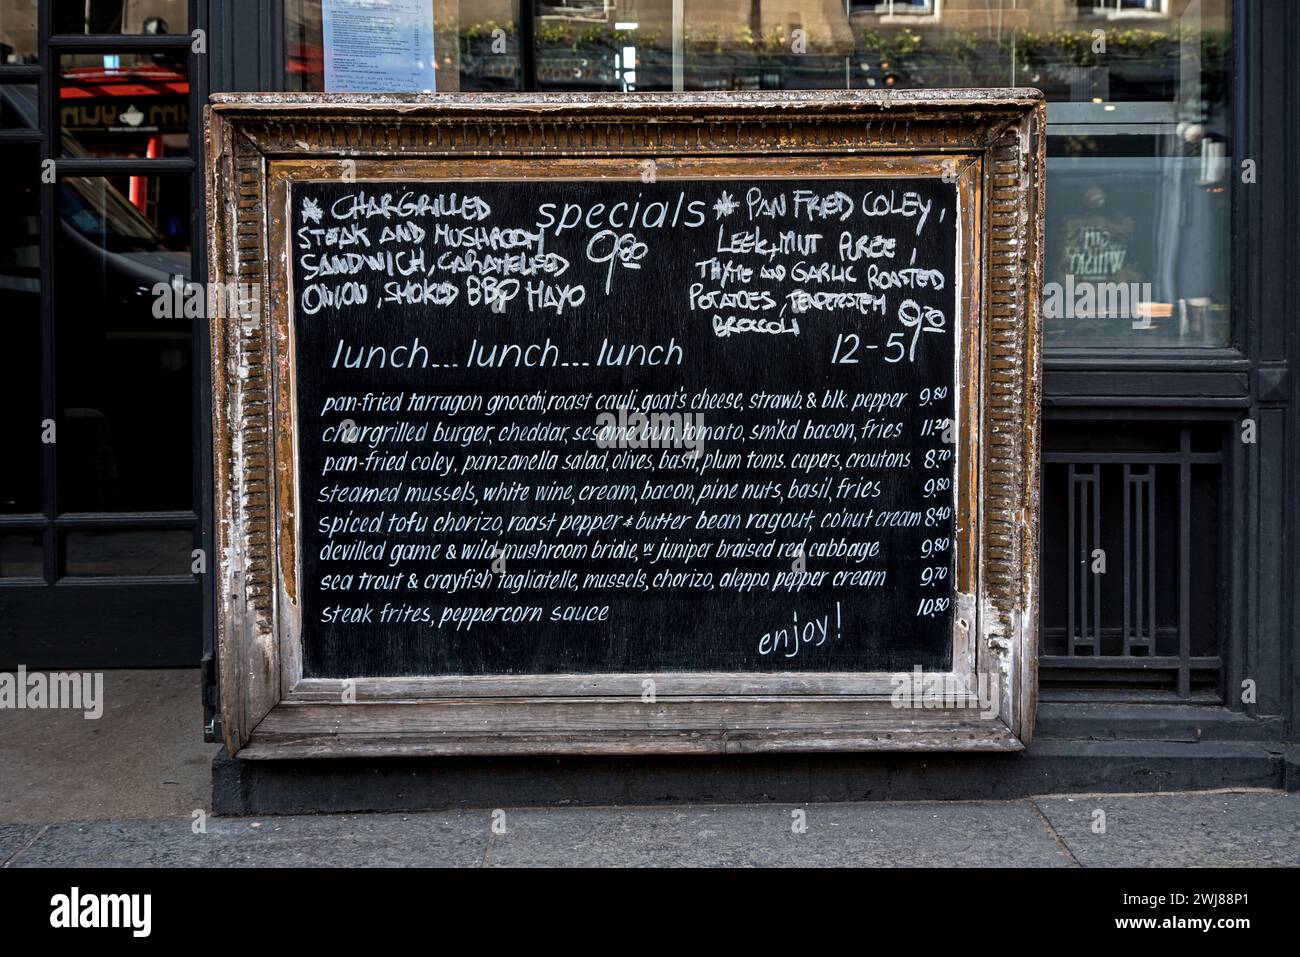 * CHARGRILLED
STEAK AND MUSHROOM
SANDWICH, CARAMELISED
ONION, SMOKED BBQ MAYO
9.80
specials
* PAN FRIED COLEY,
LEEK, MINT PUREE,
THYME AND GARLIC ROASTED
POTATOES, TENDERSTEM
BROCCOLI
lunch... lunch... lunch 12-5
pan-fried tarragon gnocchi, roast cauli, goat's cheese, strawb. & blk. pepper 9.80
chargrilled burger, cheddar, sesame bun, tomato, sm'kd bacon, fries 11.20
pan-fried coley, panzanella salad, olives, basil, plum toms. capers, croutons 8.70
steamed mussels, white wine, cream, bacon, pine nuts, basil, fries 9.80
spiced tofu chorizo, roast pepper & butter bean ragout, co'nut cream 8.40
devilled game & wild mushroom bridie, w juniper braised red cabbage 9.80
sea trout & crayfish tagliatelle, mussels, chorizo, aleppo pepper cream 9.70
steak frites, peppercorn sauce 10.80
enjoy!
WHISKY
alamy
Image ID: 2WJ88P1
www.alamy.com